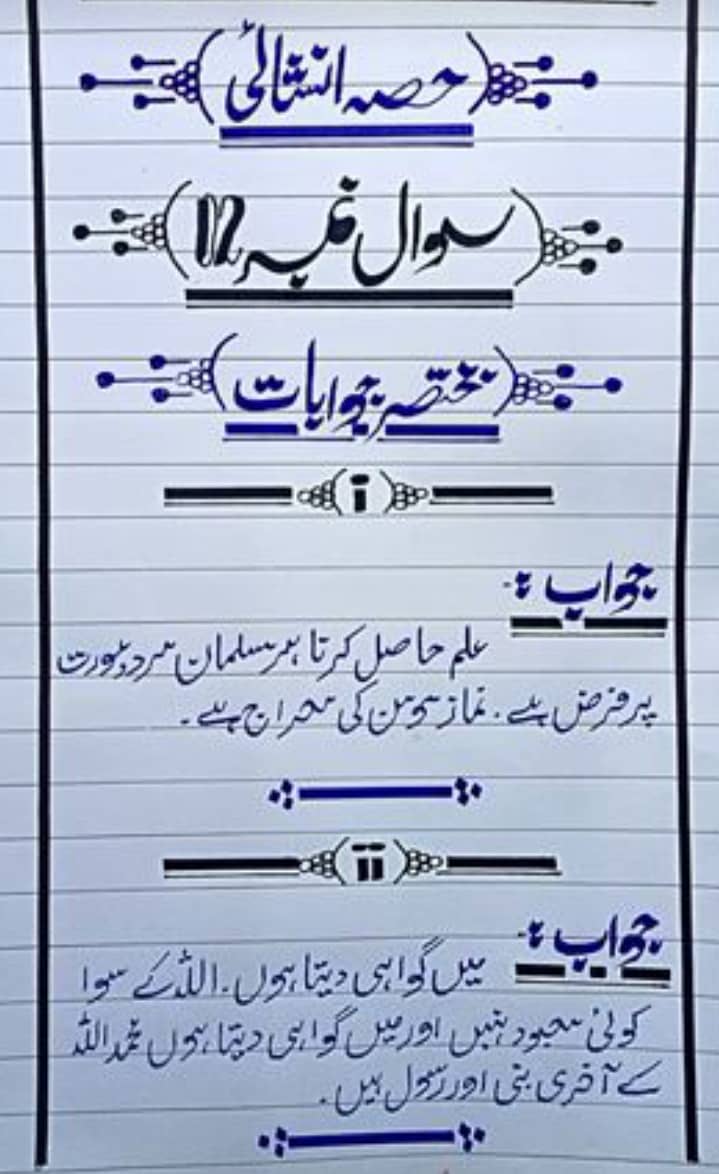 حصہ انشائی
سوال نمبر 12
مختصر جوابات
i
جواب :-
علم حاصل کرنا ہر مسلمان مرد عورت
پر فرض ہے۔ نماز مومن کی معراج ہے۔
ii
جواب :-
میں گواہی دیتا ہوں۔ اللہ کے سوا
کوئی معبود نہیں اور میں گواہی دیتا ہوں محمد اللہ
کے آخری نبی اور رسول ہیں۔